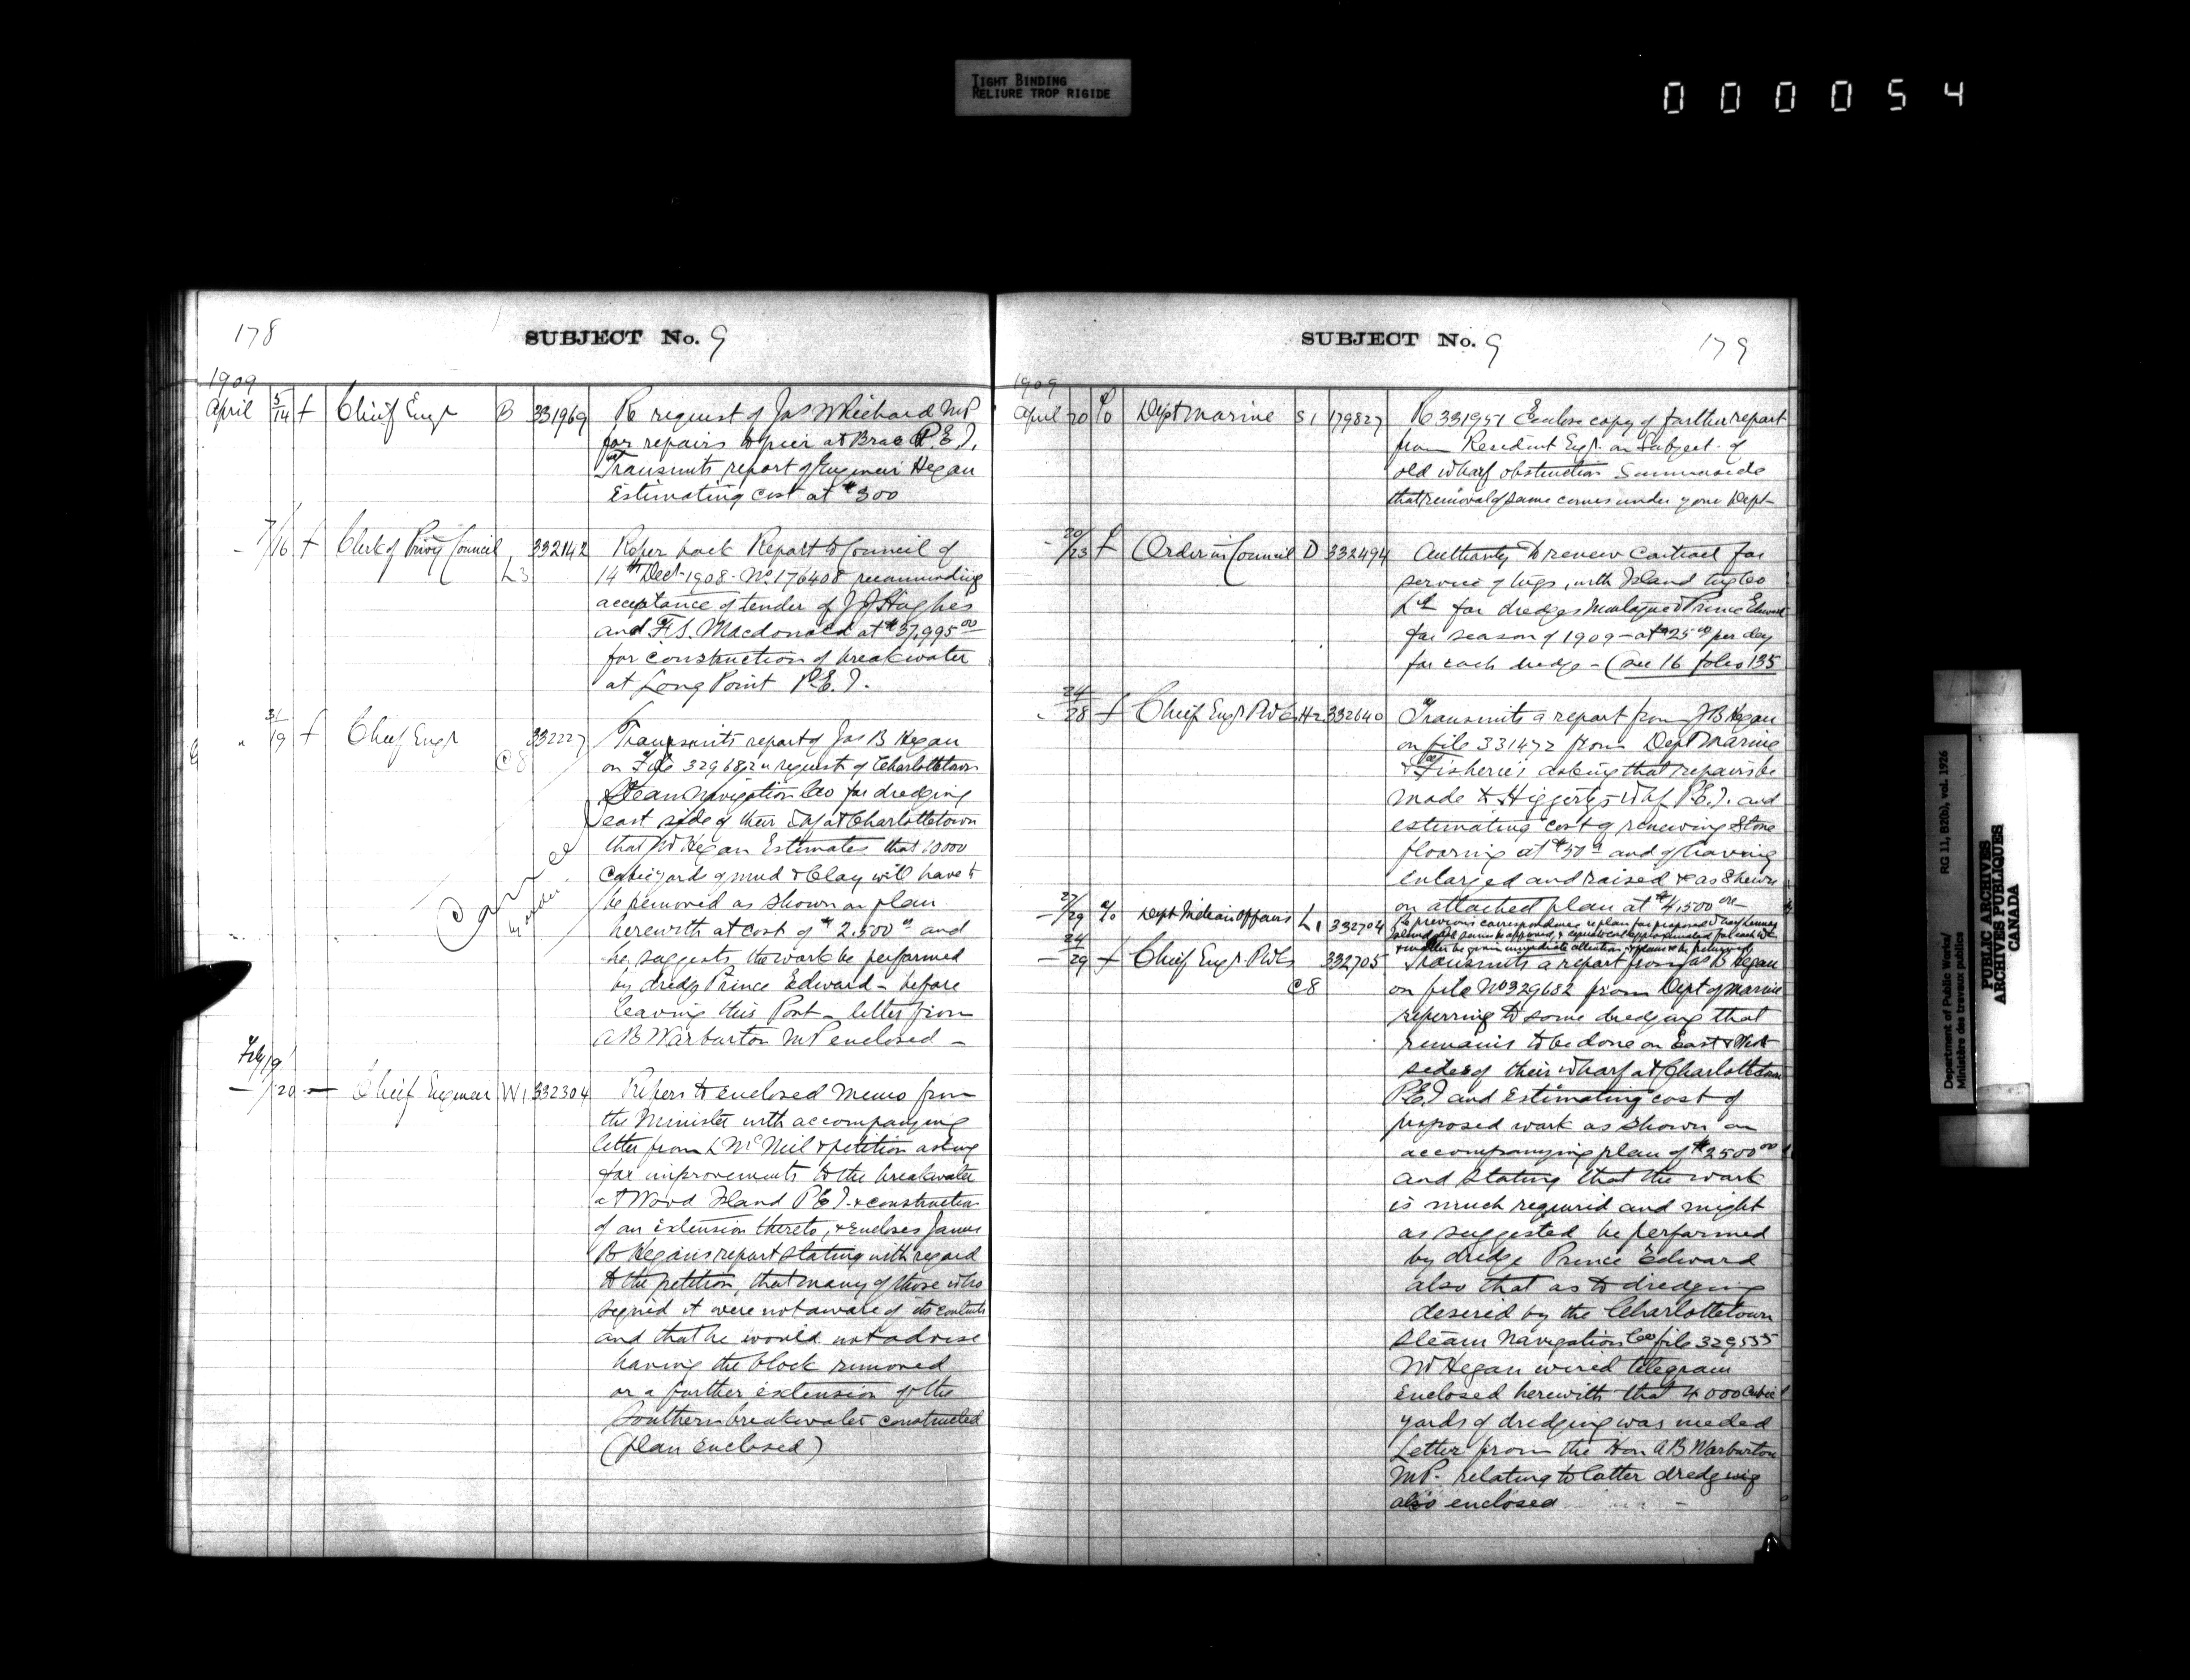 TIGHT BINDING
RELIURE TROP RIGIDE
000054
178
SUBJECT No. 9
1909
April 5/14 f Chief Engr B 331969 Re request of Jas W Richard MP
for repairs to pier at Brae P.E.I.
Transmits report of Engineer Hegan
Estimating cost at $300
- 7/16 f Clerk of Privy Council L3 332142 Refer back Report to Council of
14th Dect 1908 - No 176408 recommending
acceptance of tender of J J Hughes
and F.S. Macdonald at $37,995 00
for construction of breakwater
at Long Point P.E.I.
" 31/19 f Chief Engr C8 332227 Transmits report of Jas B Hegan
on File 329682 request of Charlottetown
Steam Navigation Coo for dredging
east side of their Wf at Charlottetown
that Mr Hegan Estimates that 10000
Cubic yards of mud & Clay will have to
be removed as shown on plan
herewith at cost of $2.500 00 and
he suggests the work be performed
by dredge Prince Edward - before
leaving this Port - letter from
A B Warburton MP enclosed -
Cancel
Feby 19
- /20 - Chief Engineer W1 332304 Refers to enclosed memo from
the Minister with accompanying
letter from L McNeil & petition asking
for improvements to the breakwater
at Wood Island P.E.I. & construction
of an extension thereto, & Encloses James
B Hegan's report stating with regard
to the petition, that many of those who
signed it were not aware of its contents
and that he would not advise
having the block removed
or a further extension of the
Southern breakwater constructed
(plan Enclosed)
SUBJECT No. 9
179
1909
April 20 % Dept Marine S1 179827 Re 331951 Enclose copy of further report
from Resident Engr. on Subject of
old wharf obstruction Summerside
that removal of same comes under your Dept -
- 20/23 f Order in Council D 332494 Authority to renew contract for
service of tugs, with Island tug Coo
Ltd for dredges Montague & Prince Edward
for season of 1909 - at $25 00 per day
for each dredge - (see 16 folio 135
24/28 f Chief Engr PWC H2 332640 Transmits a report from J B Hegan
on file 331472 from Dept Marine
& Fisheries asking that repairs be
made to Higgerty's Whf P.E.I. and
estimating cost of renewing Stone
flooring at $50 and of having
Enlarged and raised & as Shewn
on attached plan at $4,500 00
- 27/29 % Dept Indian Affairs L1 332704 Re previous correspondence re plan for proposed Wharf Lennox
Island
& matter be given immediate attention, & plans to be returned
- 24/29 f Chief Engr PWC C8 332705 Transmits a report from Jas B Hegan
on file No 329682 from Dept of Marine
referring to some dredging that
remains to be done on East & West
sides of their wharf at Charlottetown
P.E.I and Estimating cost of
proposed work as shown on
accompanying plan of $2500 00
and stating that the work
is much required and might
as suggested be performed
by dredge Prince Edward
also that as to dredging
desired by the Charlottetown
Steam Navigation Coo file 329555
Mr Hegan wired telegram
Enclosed herewith that 4000 Cubic
yards of dredging was needed
Letter from the Hon A B Warburton
MP. relating to latter dredging
also enclosed
Department of Public Works/ RG 11, B2(b), vol. 1926
Ministère des travaux publics
PUBLIC ARCHIVES
ARCHIVES PUBLIQUES
CANADA